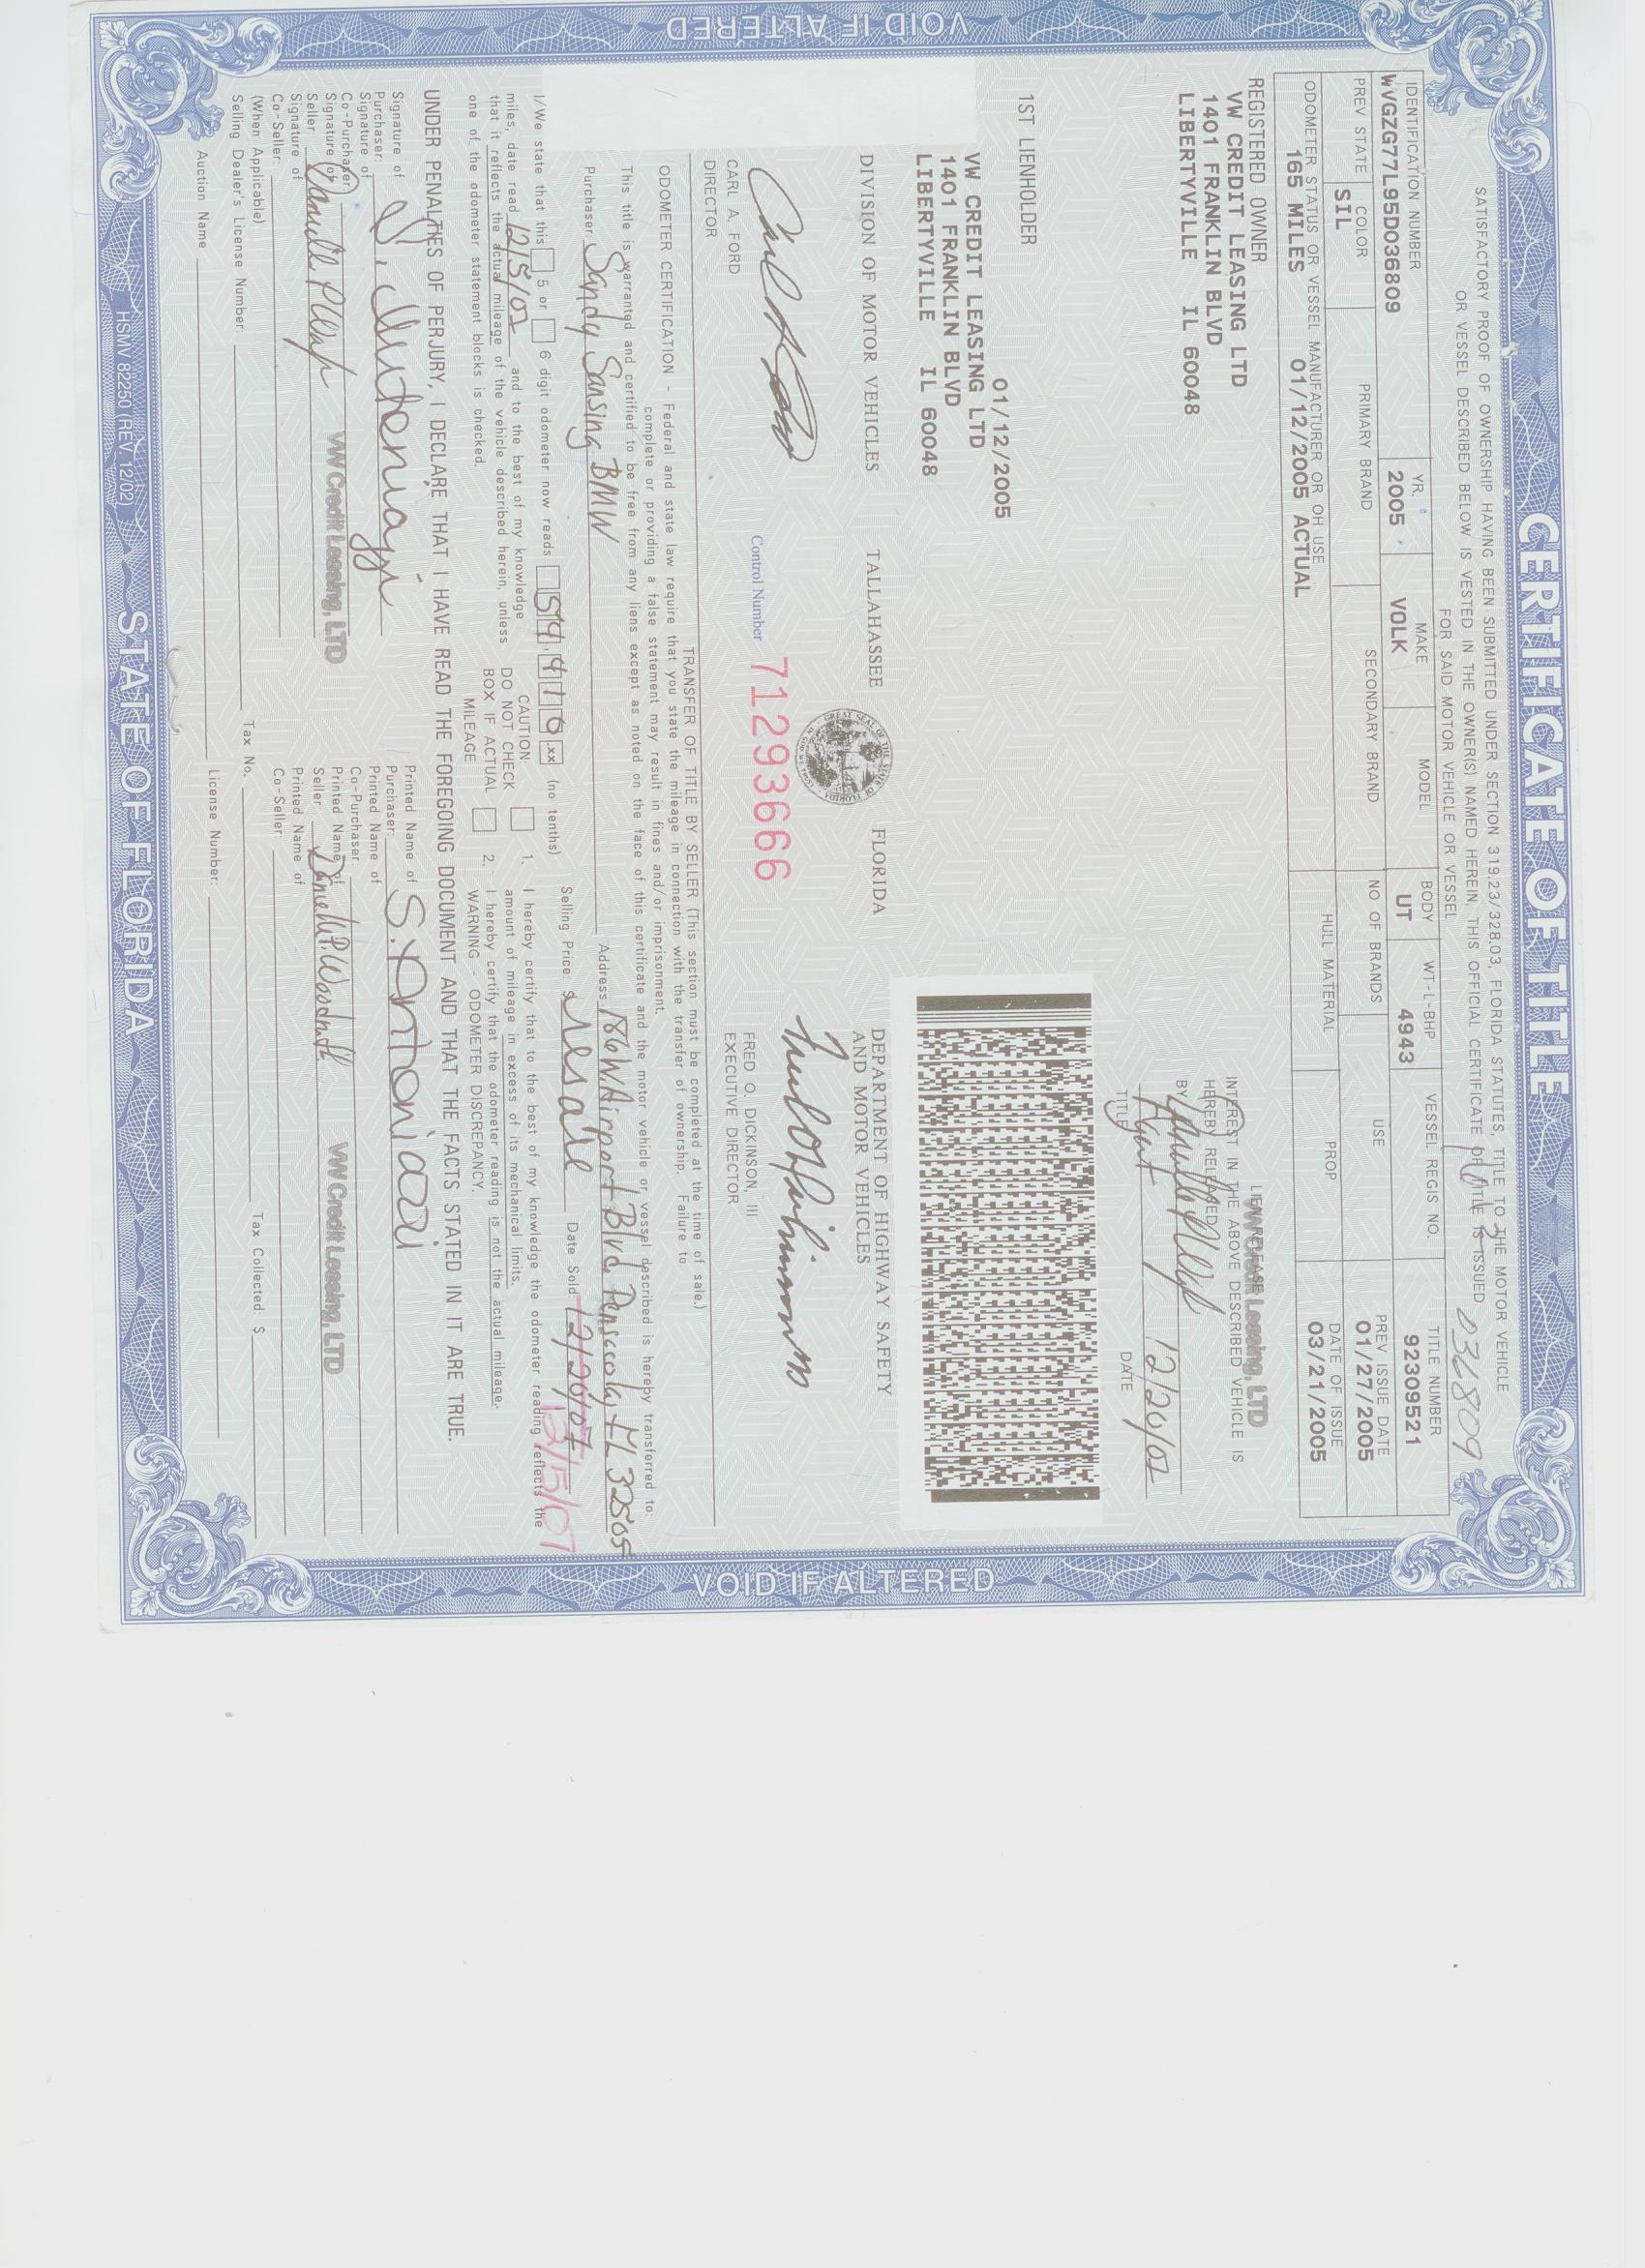 VOID IF ALTERED
CERTIFICATE OF TITLE
SATISFACTORY PROOF OF OWNERSHIP HAVING BEEN SUBMITTED UNDER SECTION 319.23/328.03, FLORIDA STATUTES, TITLE TO THE MOTOR VEHICLE
OR VESSEL DESCRIBED BELOW IS VESTED IN THE OWNER(S) NAMED HEREIN. THIS OFFICIAL CERTIFICATE OF TITLE IS ISSUED
FOR SAID MOTOR VEHICLE OR VESSEL
036809
IDENTIFICATION NUMBER YR. MAKE MODEL BODY WT-L-BHP VESSEL REGIS NO. TITLE NUMBER
WVGZG77L95D036809 2005 VOLK UT 4943 92309521
PREV STATE COLOR PRIMARY BRAND SECONDARY BRAND NO OF BRANDS USE PREV ISSUE DATE
SIL 01/27/2005
ODOMETER STATUS OR VESSEL MANUFACTURER OR OH USE HULL MATERIAL PROP DATE OF ISSUE
165 MILES 01/12/2005 ACTUAL 03/21/2005
REGISTERED OWNER
VW CREDIT LEASING LTD
1401 FRANKLIN BLVD
LIBERTYVILLE IL 60048
LIEN RELEASE
VW Credit Leasing, LTD
INTEREST IN THE ABOVE DESCRIBED VEHICLE IS
HEREBY RELEASED
BY
TITLE Agent DATE 12/20/07
1ST LIENHOLDER
01/12/2005
VW CREDIT LEASING LTD
1401 FRANKLIN BLVD
LIBERTYVILLE IL 60048
DIVISION OF MOTOR VEHICLES TALLAHASSEE FLORIDA DEPARTMENT OF HIGHWAY SAFETY
AND MOTOR VEHICLES
GREAT SEAL OF THE STATE OF FLORIDA
IN GOD WE TRUST
Control Number 71293666
CARL A. FORD
DIRECTOR
FRED O. DICKINSON, III
EXECUTIVE DIRECTOR
TRANSFER OF TITLE BY SELLER (This section must be completed at the time of sale.)
ODOMETER CERTIFICATION - Federal and state law require that you state the mileage in connection with the transfer of ownership. Failure to
complete or providing a false statement may result in fines and/or imprisonment.
This title is warranted and certified to be free from any liens except as noted on the face of this certificate and the motor vehicle or vessel described is hereby transferred to:
Purchaser: Sandy Sansing BMW Address: 186 W. Airport Blvd Pensacola, FL 32505
Selling Price: $ resale Date Sold: 12/20/07
12/15/07
I/We state that this 5 or 6 digit odometer now reads 54,410.xx (no tenths)
miles, date read 12/5/07 and to the best of my knowledge
that it reflects the actual mileage of the vehicle described herein, unless
one of the odometer statement blocks is checked.
CAUTION:
DO NOT CHECK
BOX IF ACTUAL
MILEAGE
1. I hereby certify that to the best of my knowledge the odometer reading reflects the
amount of mileage in excess of its mechanical limits.
2. I hereby certify that the odometer reading is not the actual mileage.
WARNING - ODOMETER DISCREPANCY.
UNDER PENALTIES OF PERJURY, I DECLARE THAT I HAVE READ THE FOREGOING DOCUMENT AND THAT THE FACTS STATED IN IT ARE TRUE.
Signature of
Purchaser:
Printed Name of
Purchaser: S. Antoniazzi
Signature of
Co-Purchaser:
Printed Name of
Co-Purchaser:
Signature of
Seller: VW Credit Leasing, LTD
Printed Name of
Seller: Danielle P. Woodruff VW Credit Leasing, LTD
Signature of
Co-Seller:
Printed Name of
Co-Seller:
(When Applicable)
Selling Dealer's License Number: Tax No. Tax Collected: $
Auction Name License Number:
HSMV 82250 (REV. 12/02)
STATE OF FLORIDA
VOID IF ALTERED